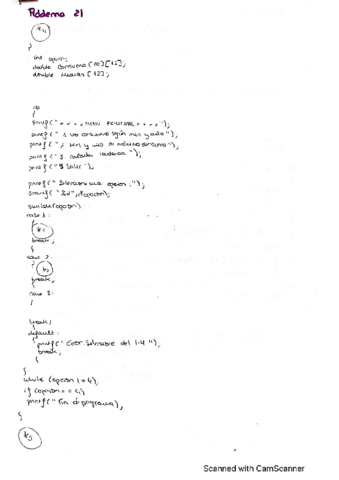 Problema 21
{
int opcion;
double consumo [10][12];
double medias [12];
do
{
printf(" * * * * MENU PRINCIPAL * * * * ");
printf(" 1. Ver consumo según mes y año ");
printf(" 2. Mes y año de máximo consumo ");
printf(" 3.
printf(" 4. Salir ");
printf(" Seleccione una opcion: ");
scanf(" %d", &opcion);
switch (opcion)
case 1:
{
break;
}
case 2:
{
break;
}
case 3:
{
break;
}
default:
{ printf(" Error. Seleccione del 1-4 ");
break;
}
}
while (opcion != 4);
if (opcion ==
printf(" Fin de programa);
}
Scanned with CamScanner